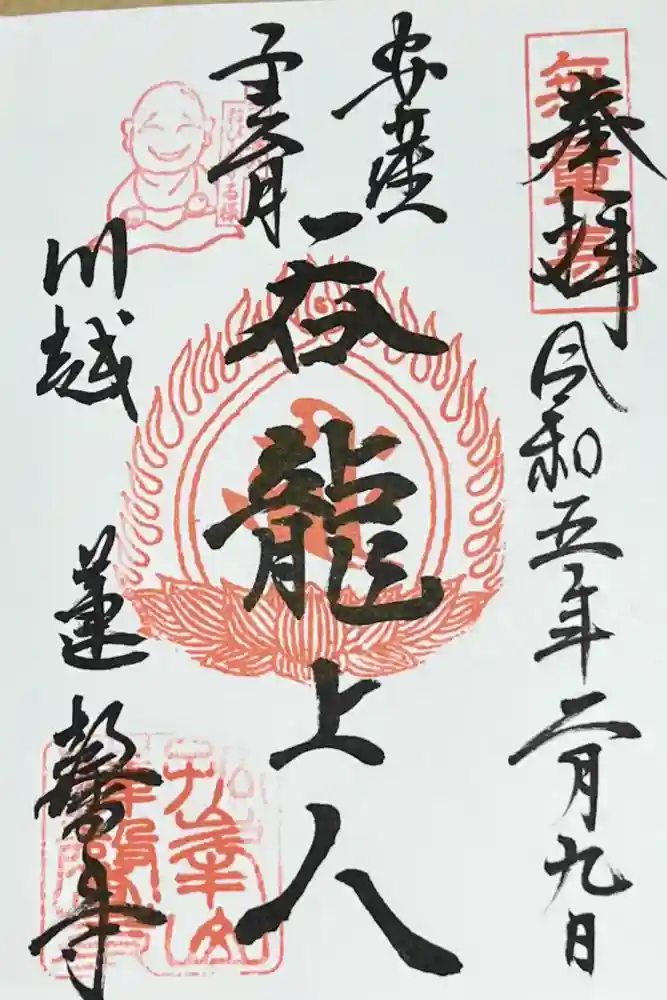 奉拝
令和五年二月九日
安産
子育
呑龍上人
川越
蓮馨寺